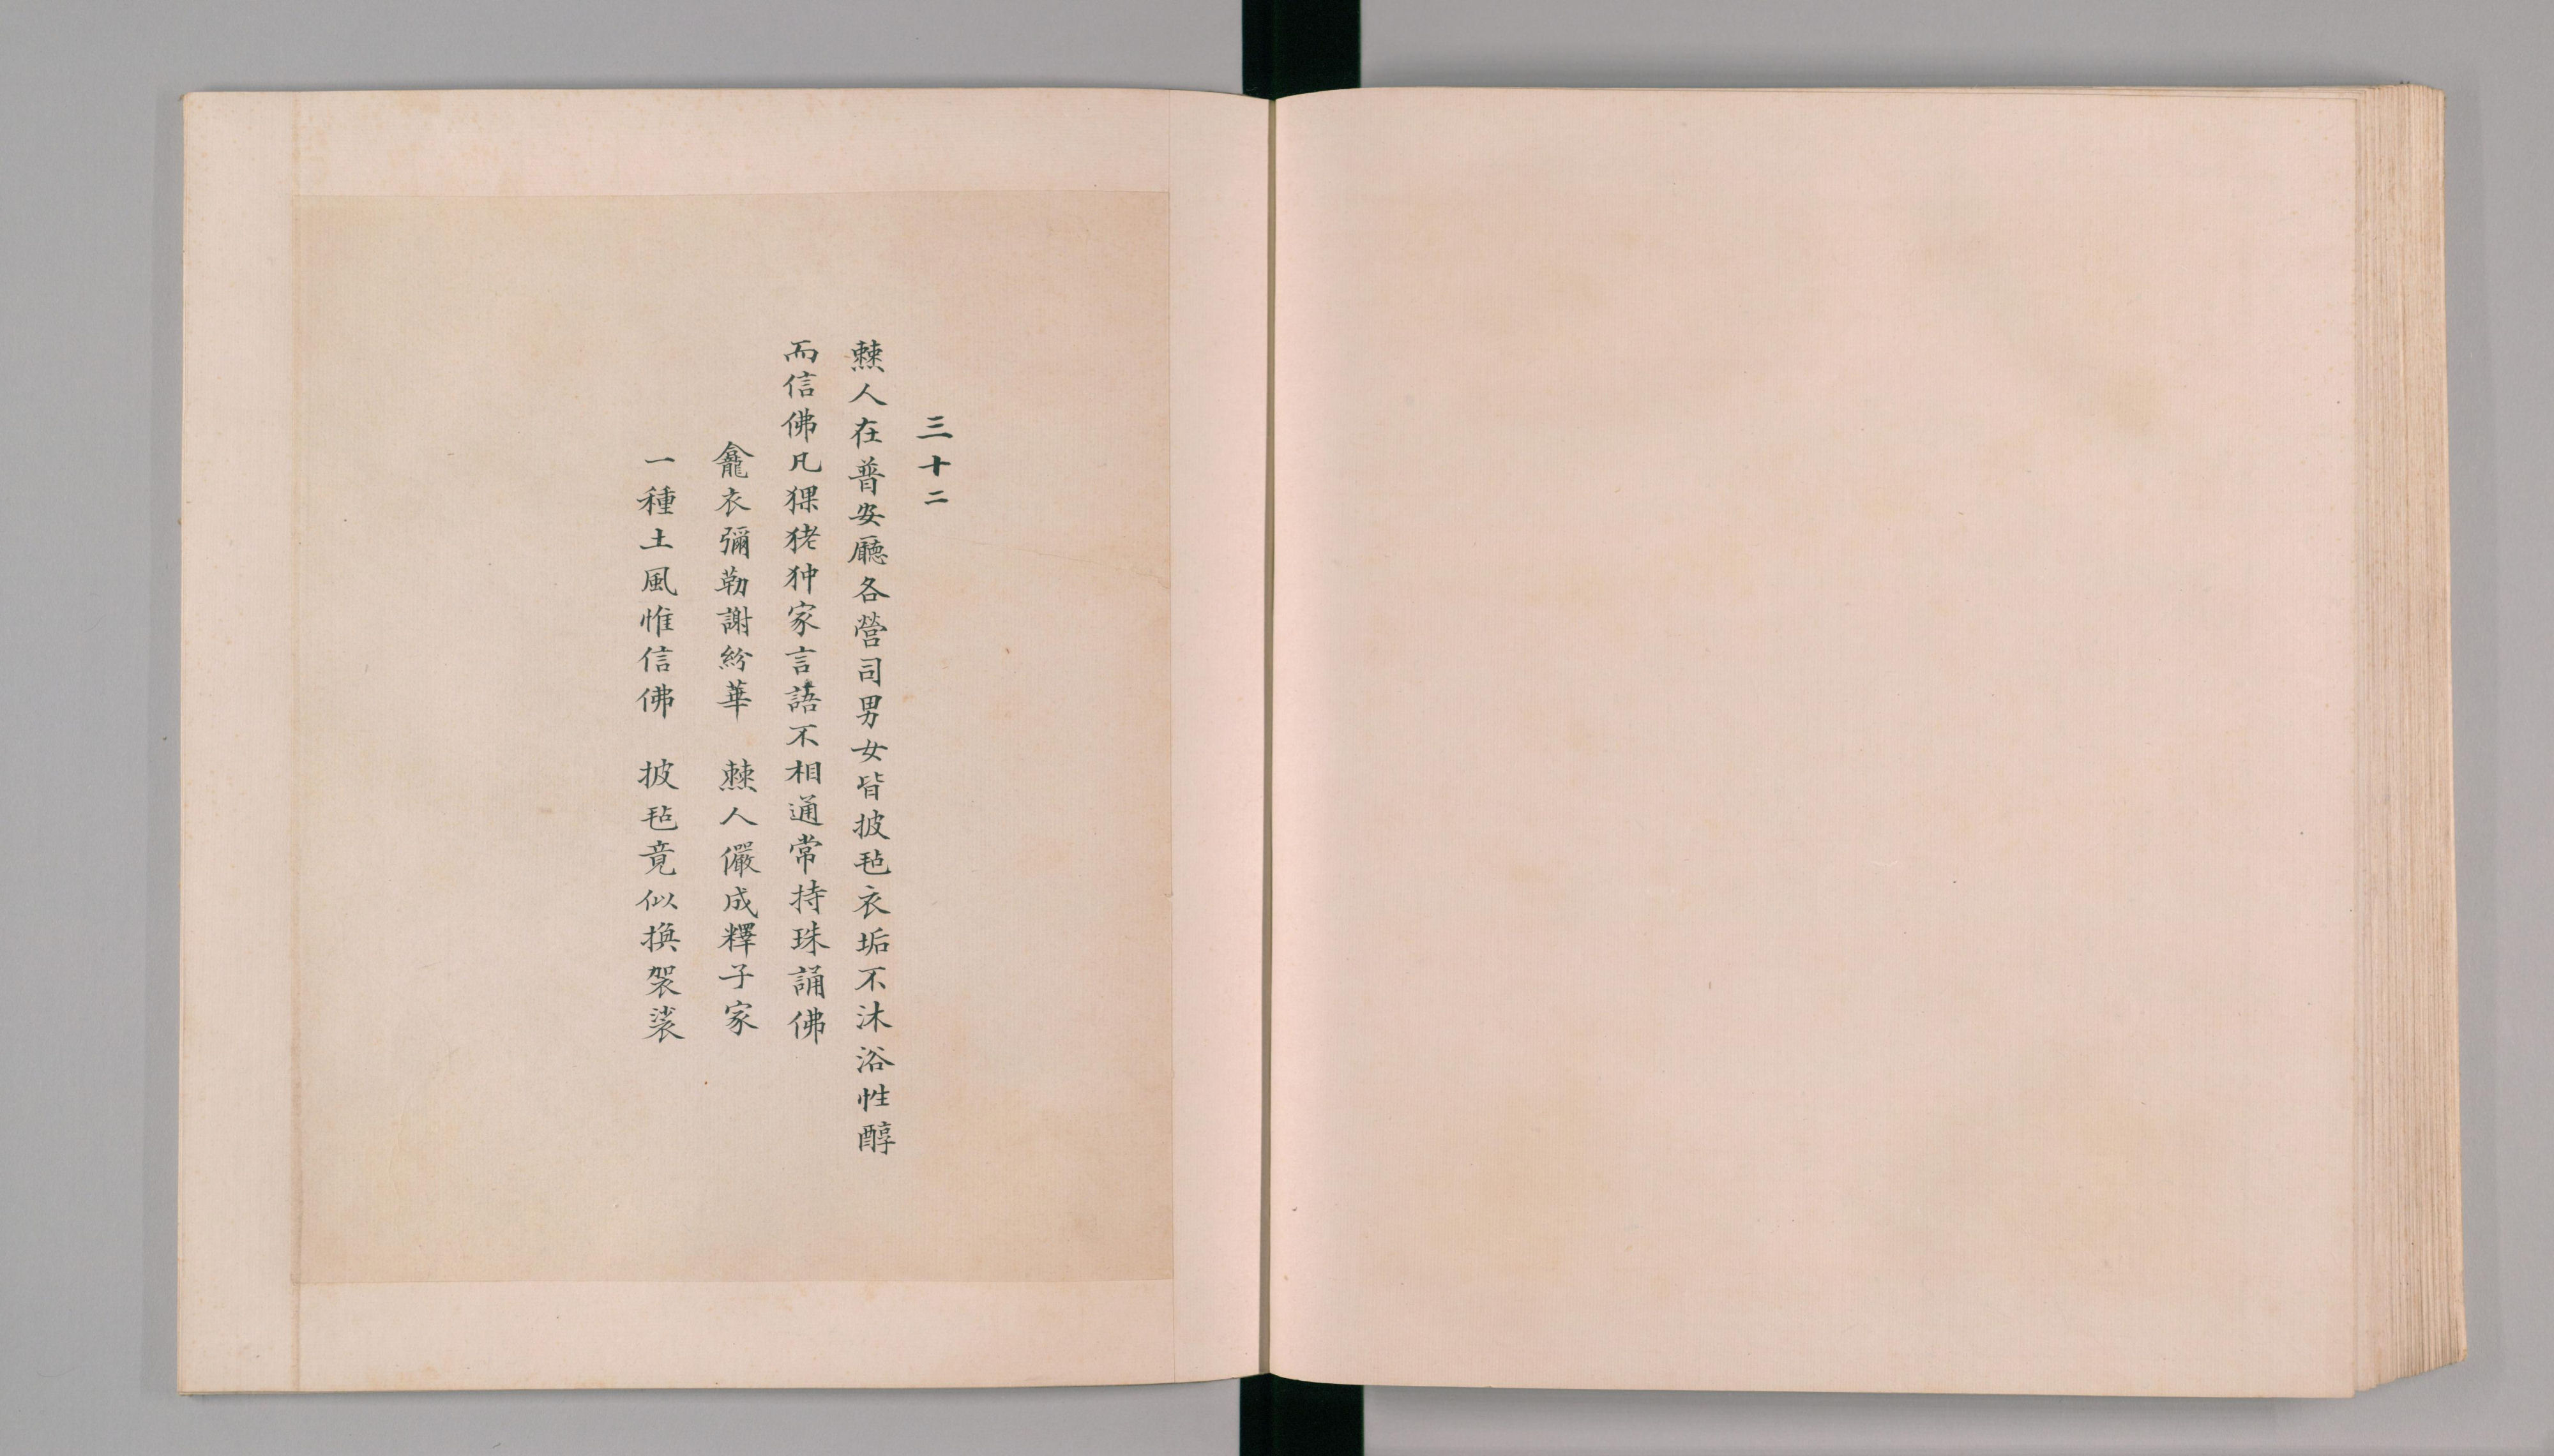 三十二
僰人在普安廳各營司男女皆披毡衣垢不沐浴性醇
而信佛凡猓狫狆家言語不相通常持珠誦佛
龕衣彌勒謝紛華　僰人儼成釋子家
一種土風惟信佛　披毡竟似換袈裟